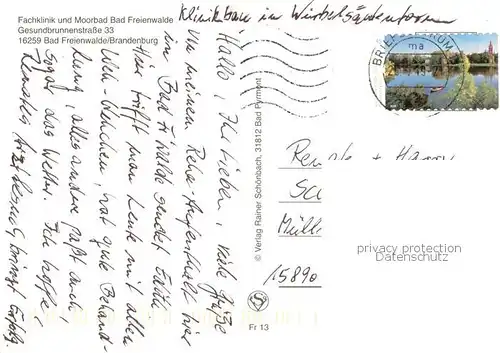 Fachklinik und Moorbad Bad Freienwalde
Gesundbrunnenstraße 33
16259 Bad Freienwalde/Brandenburg
Klinikbau in Wirbelsäulenform
Hallo, Ihr Lieben, viele Grüße
von meinem Reha-Aufenthalt hier
in Bad Fr'walde sendet Edith
Hier trifft man Leute mit allen
Weh-Wehchen, hat gute Behand-
lung, alles andere paßt auch,
sogar das Wetter. Ich hoffe,
Renates bringt Erfolg.
© Verlag Rainer Schönbach, 31812 Bad Pyrmont
BRIEFZENTRUM
ma
Müll
15890
privacy protection
Datenschutz
Fr 13